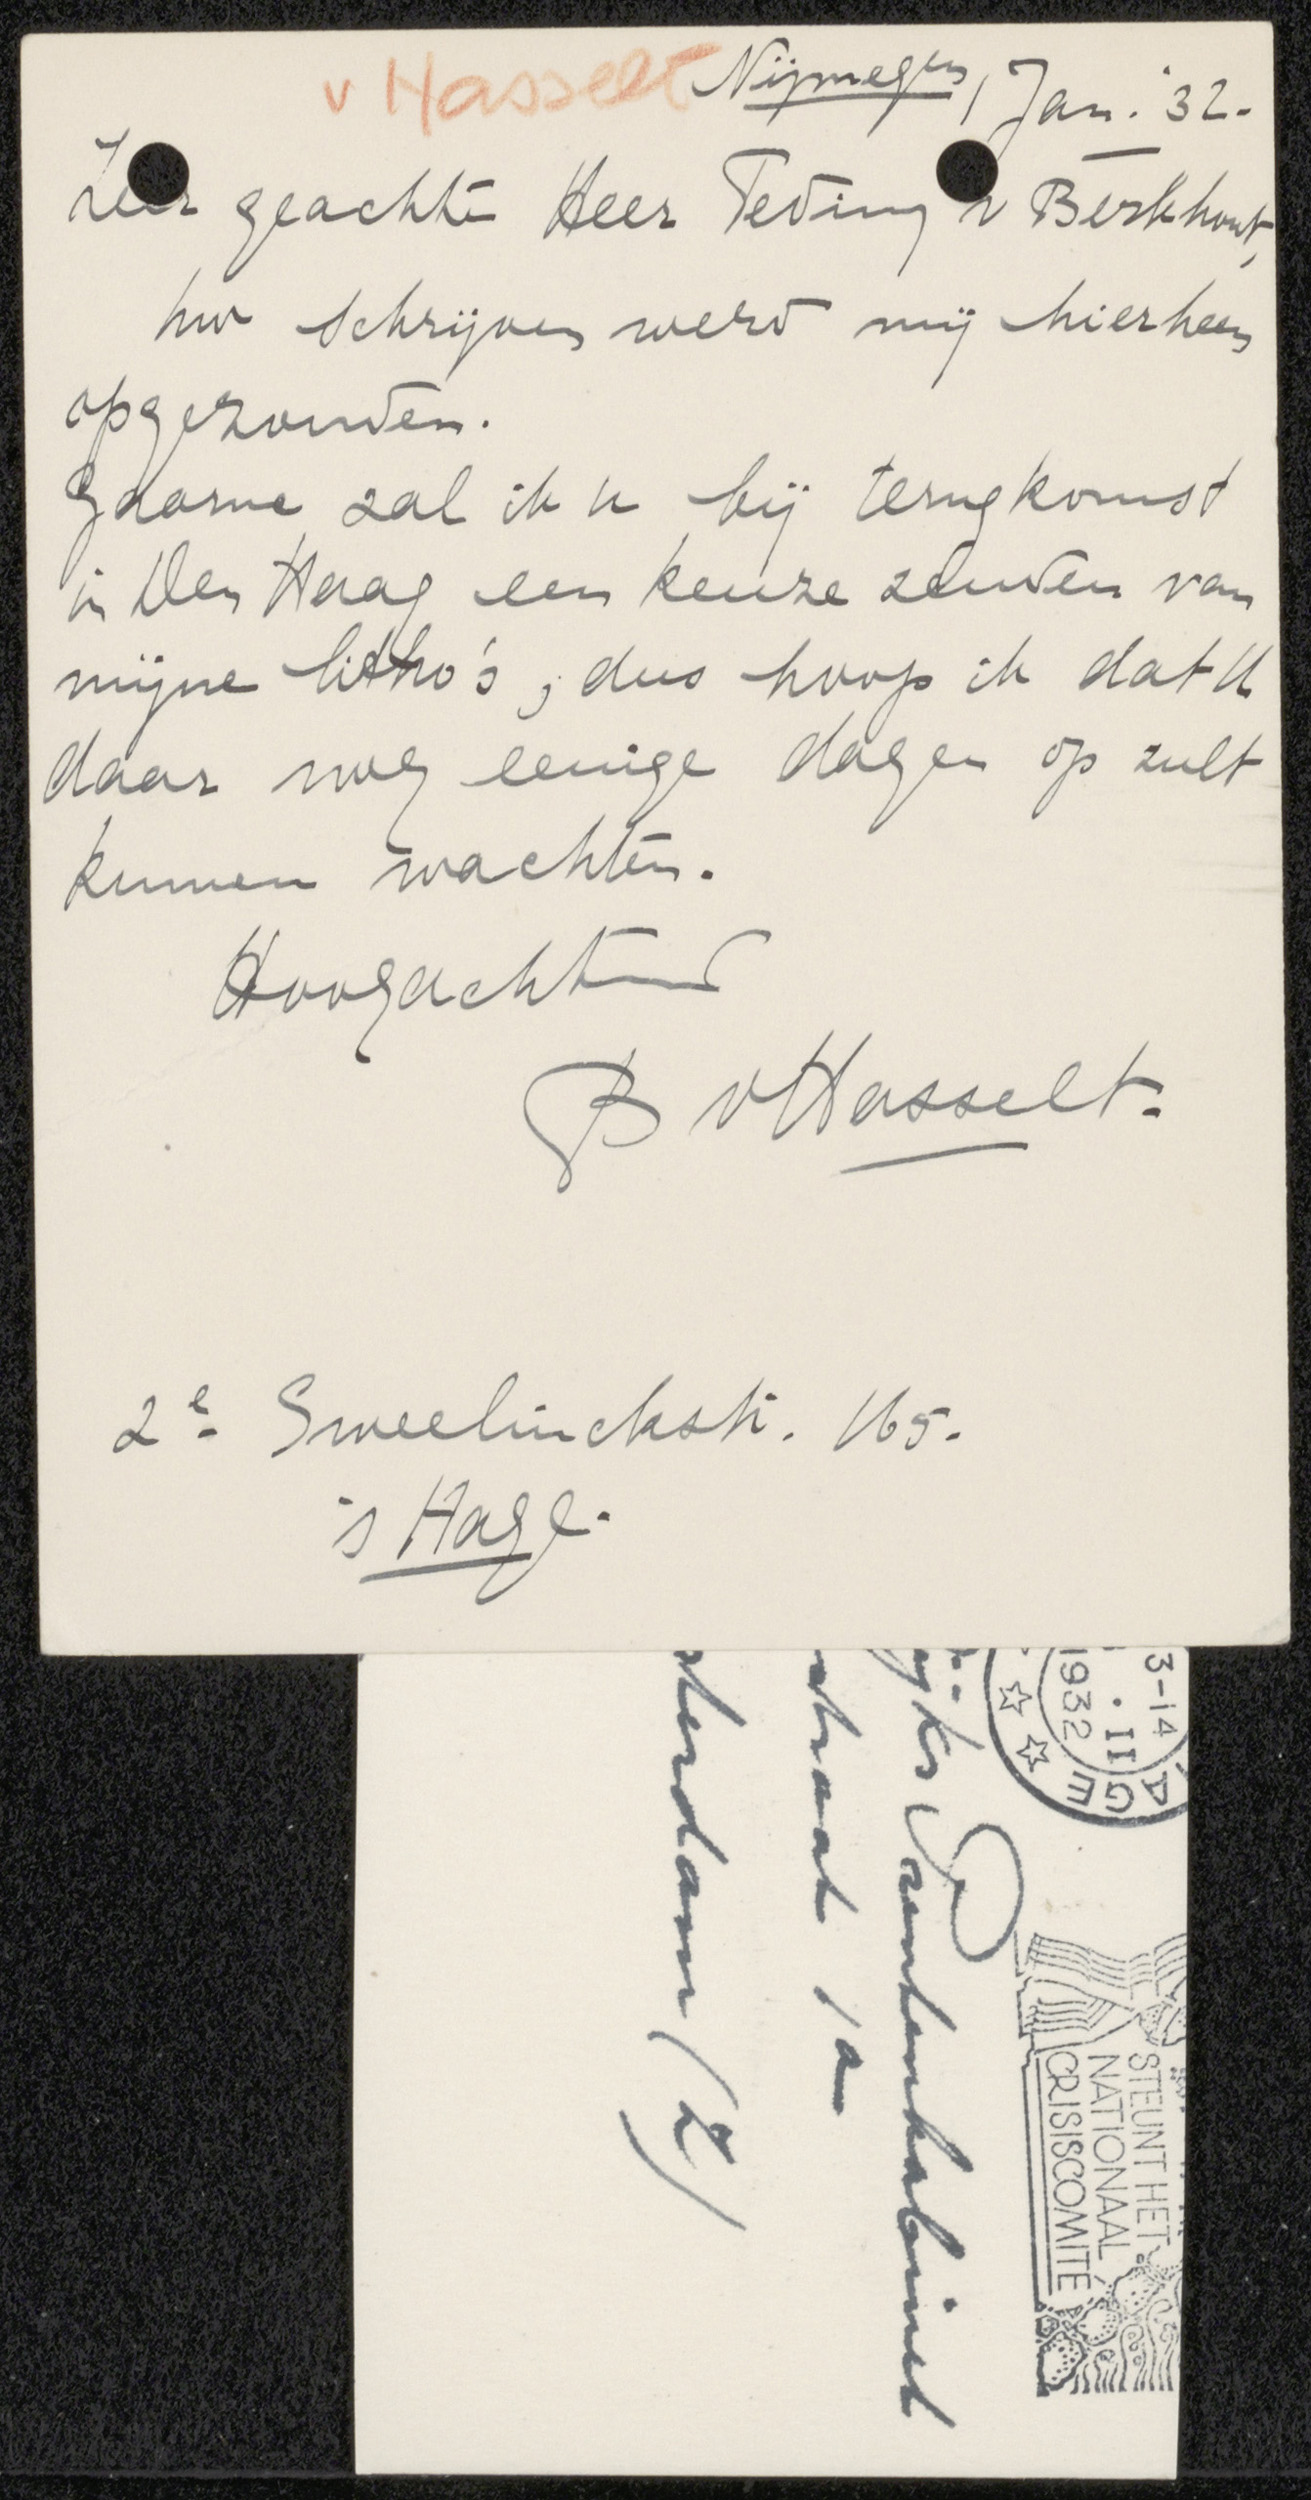 v Hasselt
Nijmegen, 1 Jan. '32.
Zeer geachte Heer Teding v Berkhout,
Uw schrijven werd mij hierheen
opgezonden.
Gaarne zal ik u bij terugkomst
in Den Haag een keuze zenden van
mijne litho's, dus hoop ik dat U
daar nog eenige dagen op zult
kunnen wachten.
Hoogachtend
B v Hasselt.
2e Sweelinckstr. 165.
's Hage.
3-14
. II
1932
AGE
STEUNT HET
NATIONAAL
CRISISCOMITÉ
ijks Prentenkabinet
straat 1a
sterdam (Z)